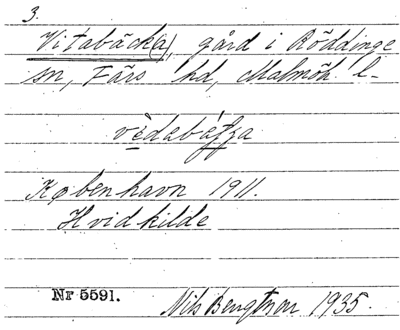 3.
Vitabäck(a), gård i Röddinge
sn, Färs hd, Malmöh. l-
København 1911.
Hvidkilde
Nr 5591.
Nils Bengtsson 1935.